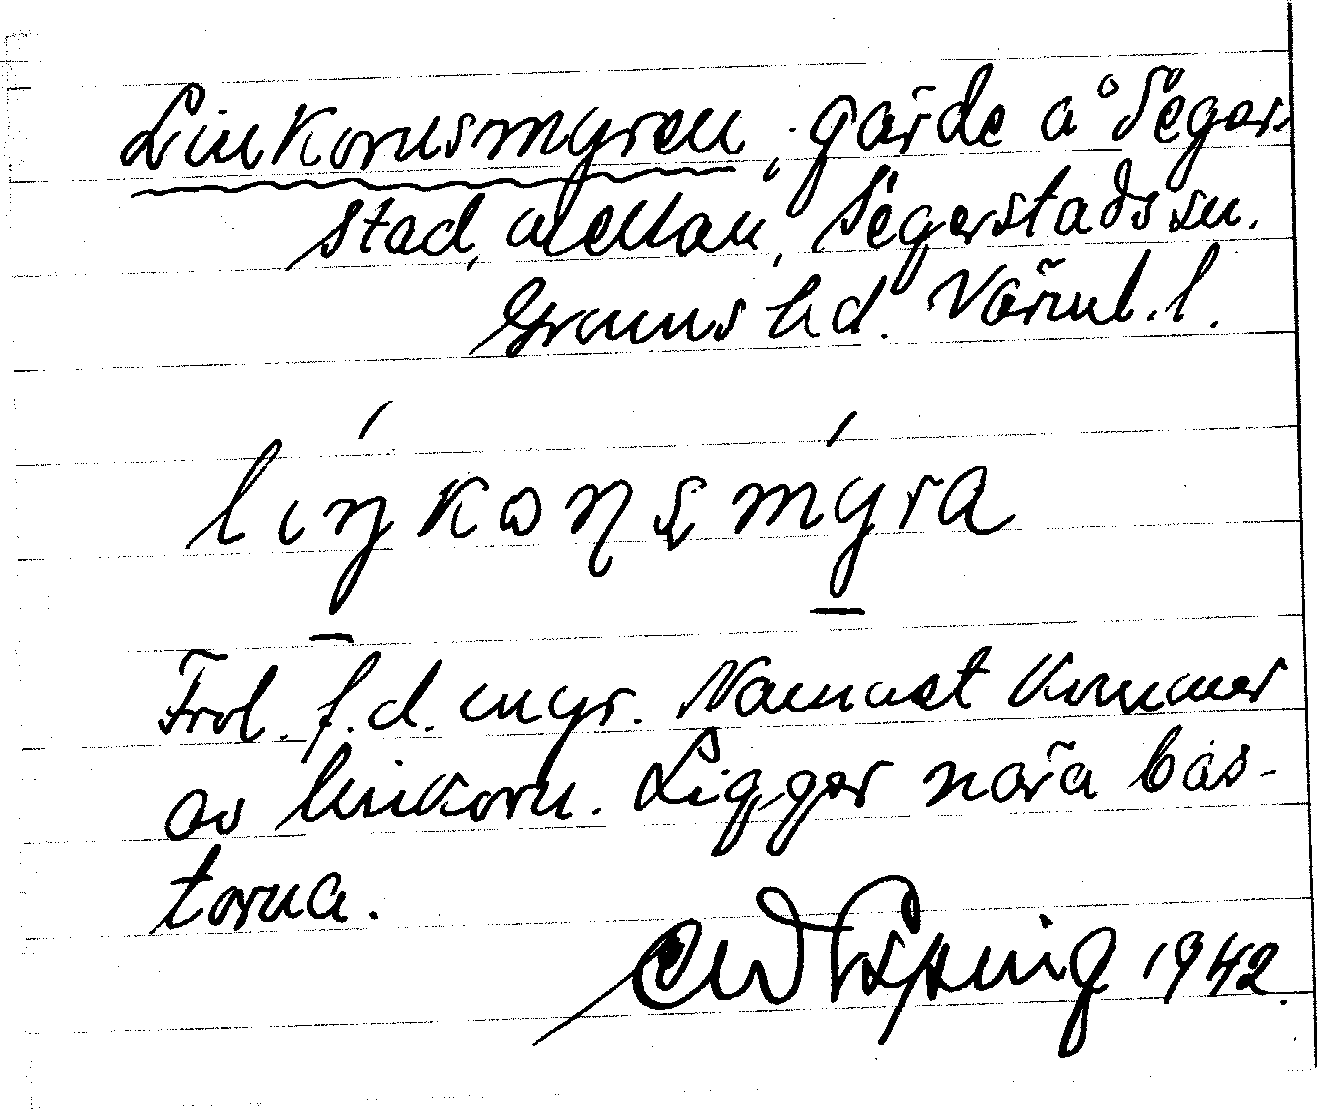 Linkornsmyren, gärde å Seger-
stad, mellan, Segerstads sn.
Grums hd. Värml. l.
liŋkoṇṣmýra
Trol. f.d. myr. Namnet kommer
av linkorn. Ligger nära bås-
torna.
1942.